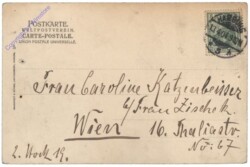 POSTKARTE
WELTPOSTVEREIN
CARTE-POSTALE
UNION POSTALE UNIVERSELLE
Frau Caroline Katzenbeisser
b/ Frau Zischek
Wien 16. Thaliastr
No: 67
2. Stock 19.